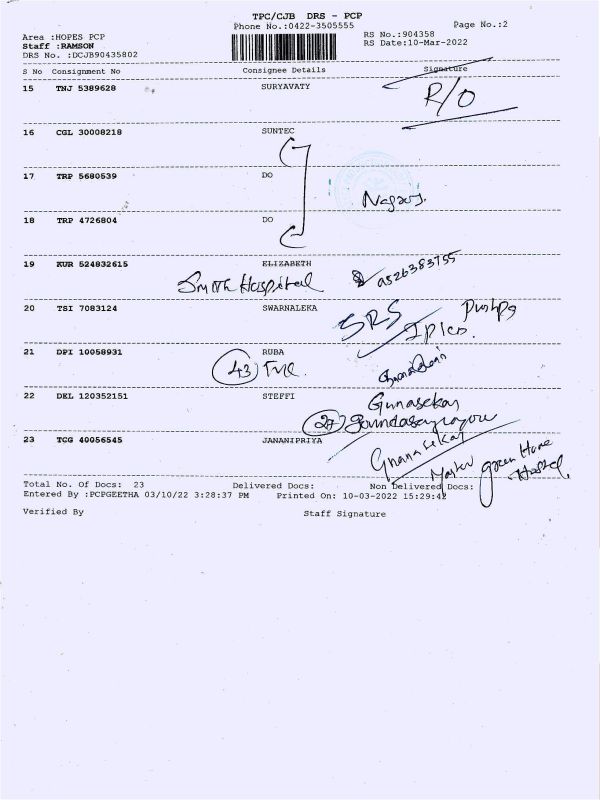 TPC/CJB DRS - PCP
Phone No.:0422-3505555
Page No.:2
Area :HOPES PCP
RS No.:904358
Staff :RAMSON
RS Date:10-Mar-2022
DRS No. :DCJB90435802
S No Consignment No Consignee Details Signature
15 TNJ 5389628 SURYAVATY
R/O
16 CGL 30008218 SUNTEC
17 TRP 5680539 DO
Nagaraj.
18 TRP 4726804 DO
19 KUR 524832615 ELIZABETH
Hospital
20 TSI 7083124 SWARNALEKA
SRS
21 DPI 10058931 RUBA
43
22 DEL 120352151 STEFFI
Gunasekar
27
23 TCG 40056545 JANANIPRIYA
Gnanasekar
green Home
Hostel.
Total No. Of Docs: 23 Delivered Docs: Non Delivered Docs:
Entered By :PCPGEETHA 03/10/22 3:28:37 PM Printed On: 10-03-2022 15:29:42
Verified By Staff Signature